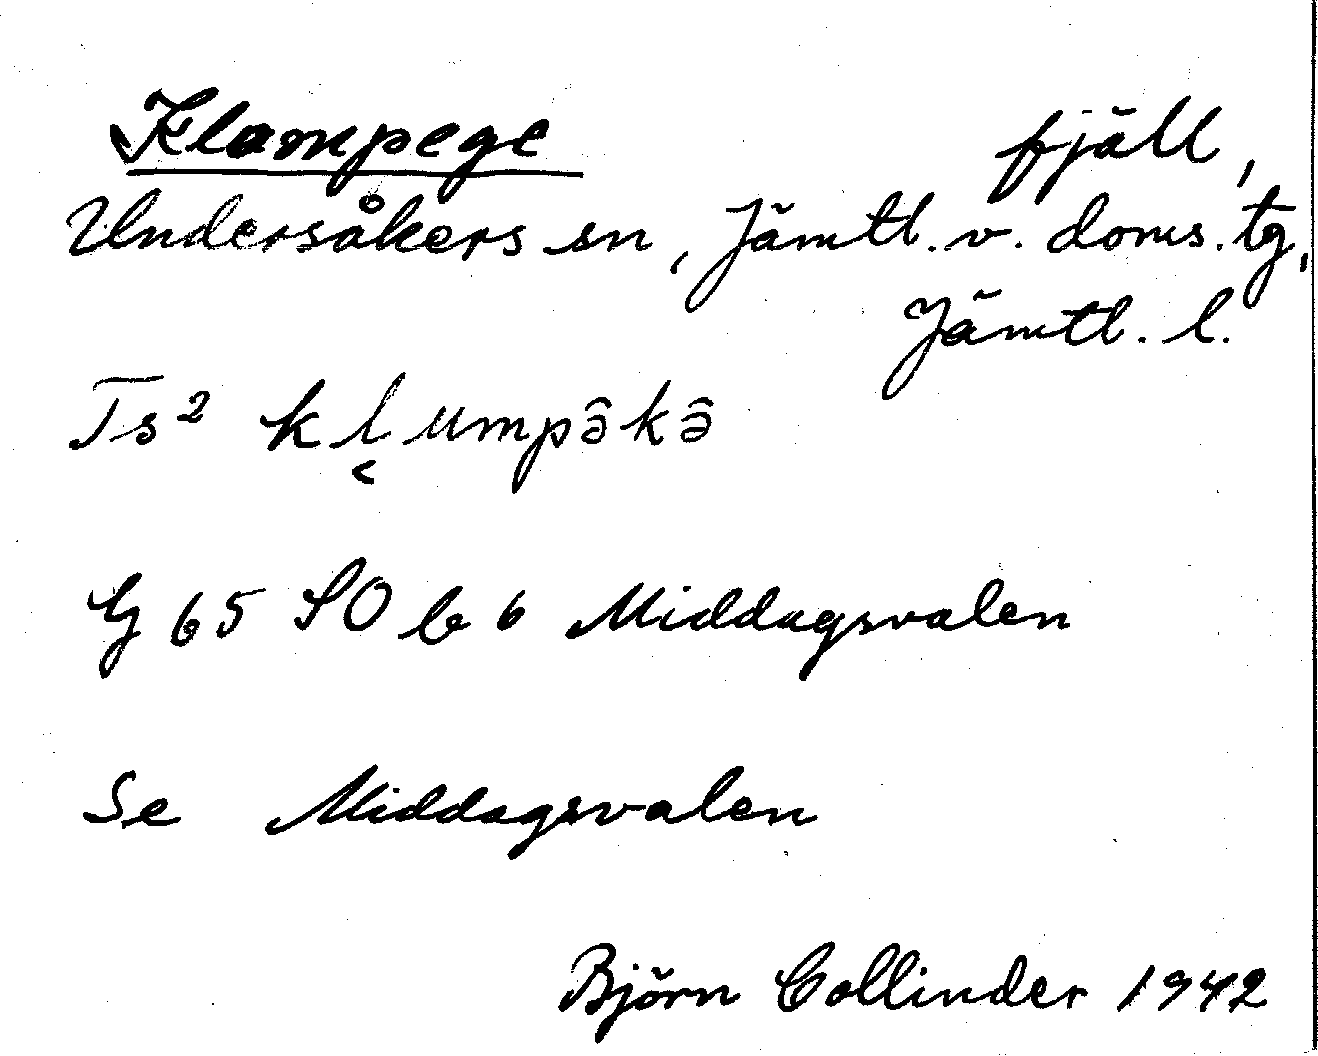 Klampege fjäll,
Undersåkers sn, Jämtl. v. doms. tg,
Jämtl. l.
Ts² kl̬umpə̂kə̂
G 65 SO b 6 Middagsvalen
Se Middagsvalen
Björn Collinder 1942